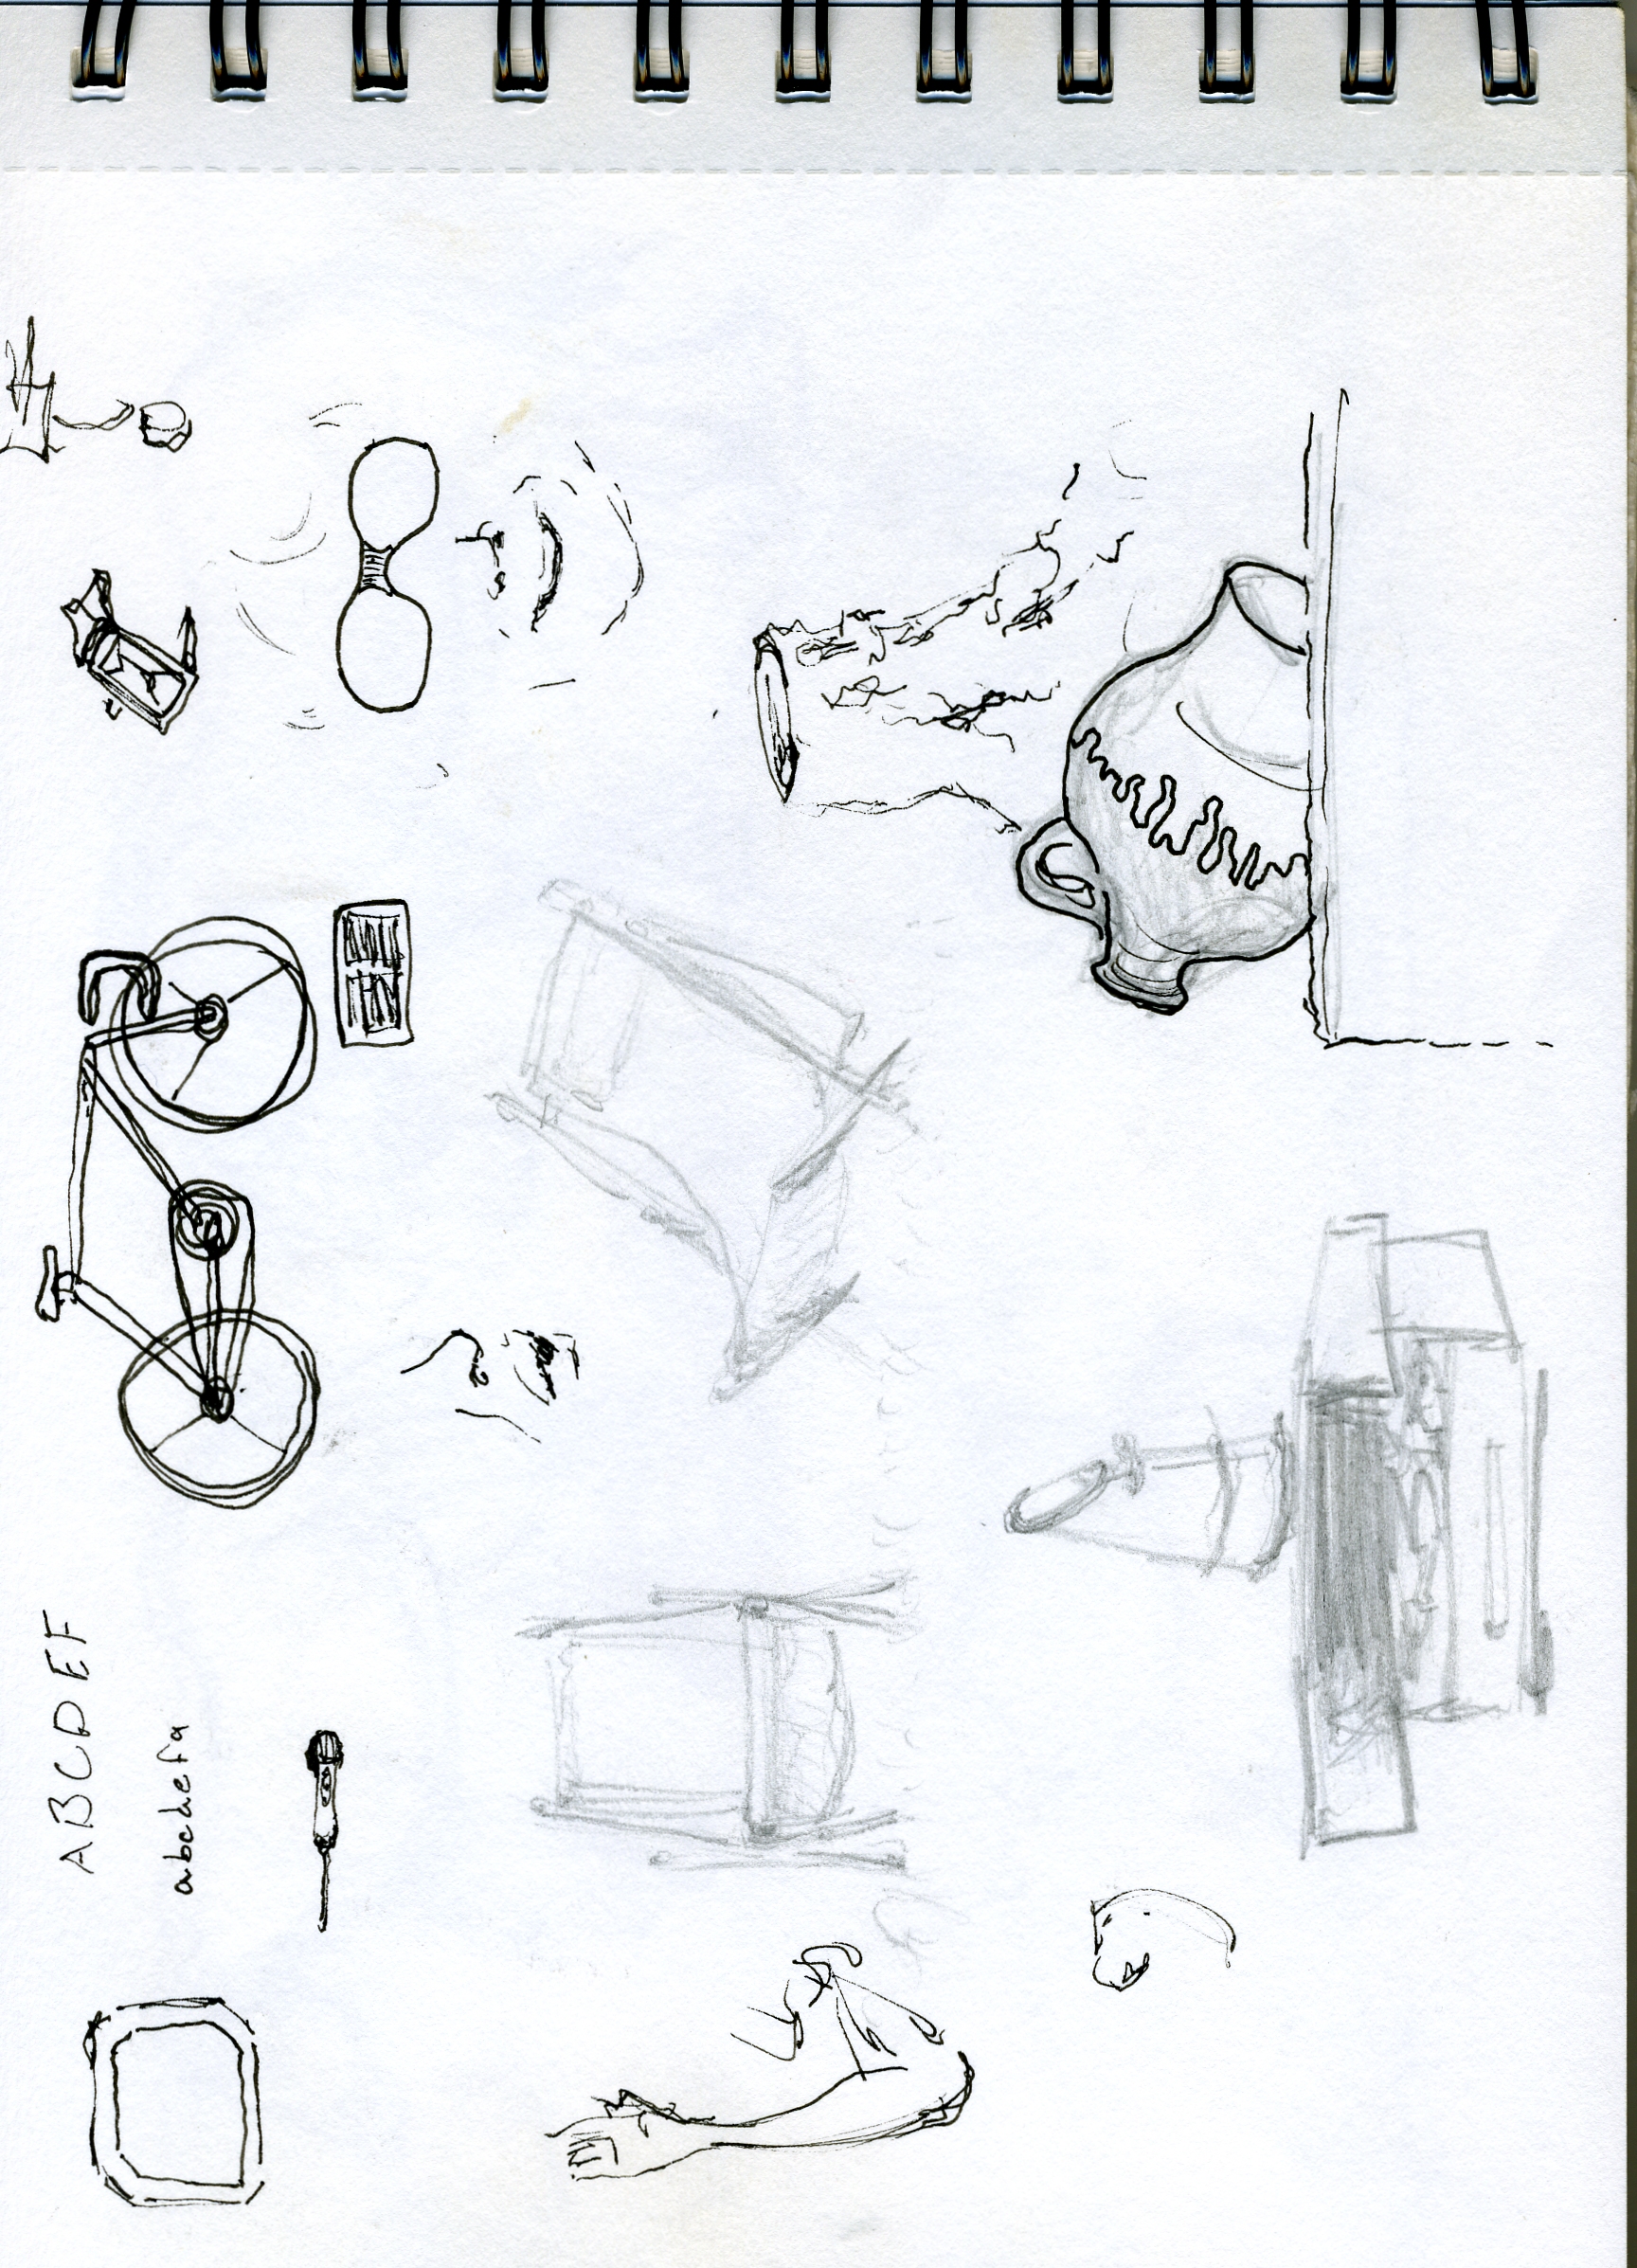 ABCDEF
abcdefa